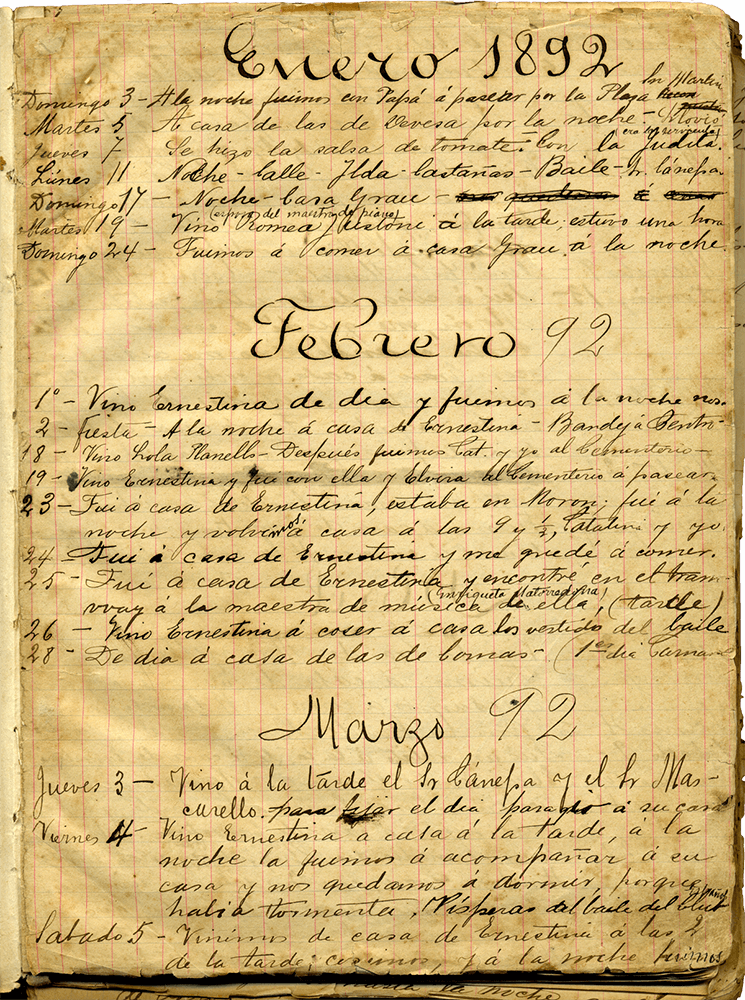 Enero 1892
Sn Martin
Domingo 3 - A la noche fuimos con Papá á pasear por la Plaza
Martes 5 A casa de las de Devesa por la noche - Novio
(era la sirvienta)
Jueves 7 Se hizo la salsa de tomate. Con la Judita.
Lúnes 11 Noche - Calle - Ilda - Castañas - Baile - Sr. Cánepa.
Domingo 17 - Noche - Casa Grau -
(esposo del maestra de piano)
Martes 19 - Vino Romeo á la tarde estuvo una hora
Domingo 24 - Fuimos á comer á casa Grau á la noche.
Febrero 92
1º - Vino Ernestina de dia y fuimos á la noche nos.
2 - fiesta - A la noche á casa de Ernestina - Bandeja
18 - Vino Lola Planells - Después fuimos Cat. y yo al Cementerio -
19 - Vino Ernestina y fui con ella y Elvira al Cementerio á pasear
23 - Fui a casa de Ernestina, estaba en Moron; fui á la
noche y volvimos á casa á las 9 y ½, Catalina y yo.
24 - Fui á casa de Ernestina y me quedé á comer.
25 - Fuí á casa de Ernestina y encontré en el tram-
(Enriqueta)
vvay á la maestra de música de ella, (tarde)
26 - Vino Ernestina á coser á casa los vestido del baile
28 - De dia á casa de las de Comas - (1er dia Carna
Marzo 92
Jueves 3 - Vino á la tarde el Sr Cánepa y el Sr Mas-
curello. para fijar el dia á su casa
Viernes 4 - Vino Ernestina a casa á la tarde, á la
noche la fuimos á acompañar á su
casa y nos quedamos á dormir, porque
habia tormenta. Vísperas del baile del Club
Sabado 5 - Vinimos de casa de Ernestina á las 2
de la tarde; cosimos, y á la noche fuimos
hasta la noche